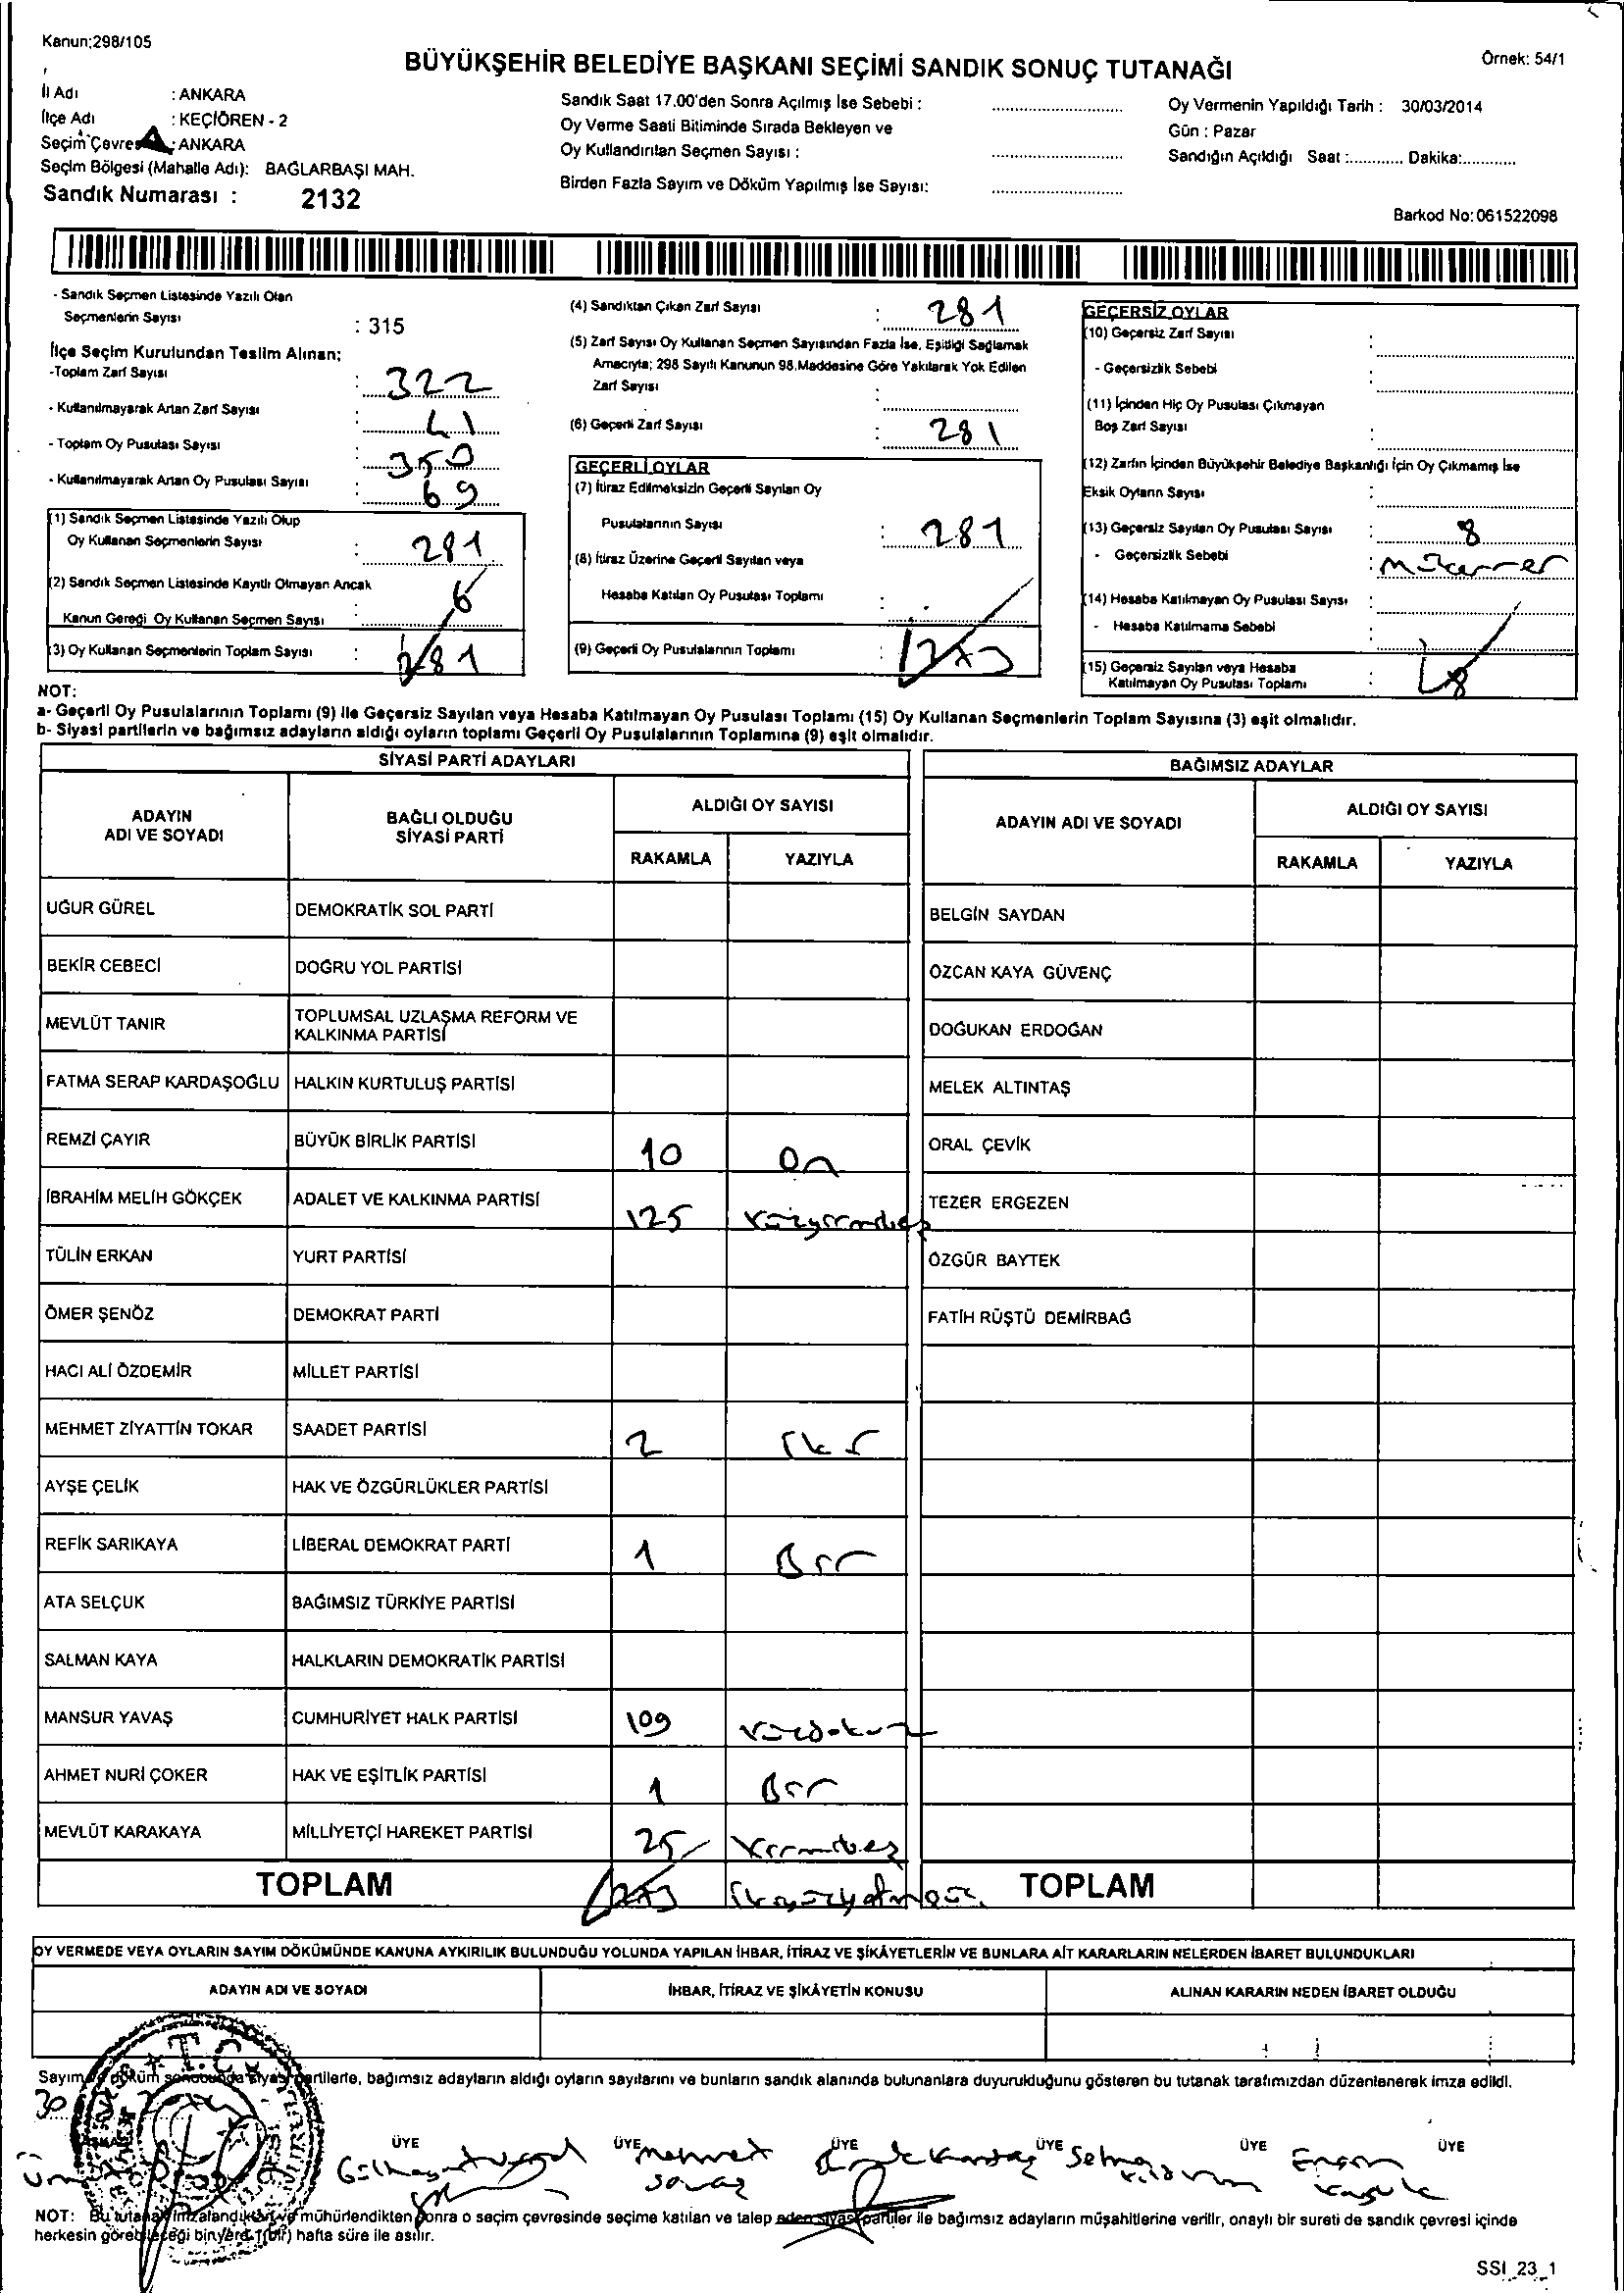 Kanun;298/105
BÜYÜKŞEHİR BELEDİYE BAŞKANI SEÇİMİ SANDIK SONUÇ TUTANAĞI
Örnek: 54/1
İl Adı : ANKARA
İlçe Adı : KEÇİÖREN - 2
Seçim Çevresi : ANKARA
Seçim Bölgesi (Mahalle Adı): BAĞLARBAŞI MAH.
Sandık Numarası : 2132
Sandık Saat 17.00'den Sonra Açılmış İse Sebebi :
Oy Verme Saati Bitiminde Sırada Bekleyen ve
Oy Kullandırılan Seçmen Sayısı :
Birden Fazla Sayım ve Döküm Yapılmış İse Sayısı:
Oy Vermenin Yapıldığı Tarih : 30/03/2014
Gün : Pazar
Sandığın Açıldığı Saat :............ Dakika:............
Barkod No: 061522098
- Sandık Seçmen Listesinde Yazılı Olan
Seçmenlerin Sayısı : 315
İlçe Seçim Kurulundan Teslim Alınan;
-Toplam Zarf Sayısı : 322
- Kullanılmayarak Artan Zarf Sayısı : 41
- Toplam Oy Pusulası Sayısı : 350
- Kullanılmayarak Artan Oy Pusulası Sayısı : 69
(1) Sandık Seçmen Listesinde Yazılı Olup
Oy Kullanan Seçmenlerin Sayısı : 281
(2) Sandık Seçmen Listesinde Kayıtlı Olmayan Ancak
Kanun Gereği Oy Kullanan Seçmen Sayısı : 6
(3) Oy Kullanan Seçmenlerin Toplam Sayısı : 281
(4) Sandıktan Çıkan Zarf Sayısı : 281
(5) Zarf Sayısı Oy Kullanan Seçmen Sayısından Fazla İse, Eşitliği Sağlamak
Amacıyla; 298 Sayılı Kanunun 98.Maddesine Göre Yakılarak Yok Edilen
Zarf Sayısı :
(6) Geçerli Zarf Sayısı : 281
GEÇERLİ OYLAR
(7) İtiraz Edilmeksizin Geçerli Sayılan Oy
Pusulalarının Sayısı : 281
(8) İtiraz Üzerine Geçerli Sayılan veya
Hesaba Katılan Oy Pusulası Toplamı :
(9) Geçerli Oy Pusulalarının Toplamı : 273
GEÇERSİZ OYLAR
(10) Geçersiz Zarf Sayısı :
- Geçersizlik Sebebi :
(11) İçinden Hiç Oy Pusulası Çıkmayan
Boş Zarf Sayısı :
(12) Zarfın İçinden Büyükşehir Belediye Başkanlığı İçin Oy Çıkmamış İse
Eksik Oyların Sayısı :
(13) Geçersiz Sayılan Oy Pusulası Sayısı : 8
- Geçersizlik Sebebi : Mükerrer
(14) Hesaba Katılmayan Oy Pusulası Sayısı :
- Hesaba Katılmama Sebebi :
(15) Geçersiz Sayılan veya Hesaba
Katılmayan Oy Pusulası Toplamı : 8
NOT:
a- Geçerli Oy Pusulalarının Toplamı (9) ile Geçersiz Sayılan veya Hesaba Katılmayan Oy Pusulası Toplamı (15) Oy Kullanan Seçmenlerin Toplam Sayısına (3) eşit olmalıdır.
b- Siyasi partilerin ve bağımsız adayların aldığı oyların toplamı Geçerli Oy Pusulalarının Toplamına (9) eşit olmalıdır.
SİYASİ PARTİ ADAYLARI
ADAYIN ADI VE SOYADI
BAĞLI OLDUĞU SİYASİ PARTİ
ALDIĞI OY SAYISI
RAKAMLA YAZIYLA
UĞUR GÜREL DEMOKRATİK SOL PARTİ
BEKİR CEBECİ DOĞRU YOL PARTİSİ
MEVLÜT TANIR TOPLUMSAL UZLAŞMA REFORM VE KALKINMA PARTİSİ
FATMA SERAP KARDAŞOĞLU HALKIN KURTULUŞ PARTİSİ
REMZİ ÇAYIR BÜYÜK BİRLİK PARTİSİ 10 On
İBRAHİM MELİH GÖKÇEK ADALET VE KALKINMA PARTİSİ 125 Yüzyirmibeş
TÜLİN ERKAN YURT PARTİSİ
ÖMER ŞENÖZ DEMOKRAT PARTİ
HACI ALİ ÖZDEMİR MİLLET PARTİSİ
MEHMET ZİYATTİN TOKAR SAADET PARTİSİ 2 İki
AYŞE ÇELİK HAK VE ÖZGÜRLÜKLER PARTİSİ
REFİK SARIKAYA LİBERAL DEMOKRAT PARTİ 1 Bir
ATA SELÇUK BAĞIMSIZ TÜRKİYE PARTİSİ
SALMAN KAYA HALKLARIN DEMOKRATİK PARTİSİ
MANSUR YAVAŞ CUMHURİYET HALK PARTİSİ 109 Yüzdokuz
AHMET NURİ ÇOKER HAK VE EŞİTLİK PARTİSİ 1 Bir
MEVLÜT KARAKAYA MİLLİYETÇİ HAREKET PARTİSİ 25 Yirmibeş
TOPLAM 273 İkiyüzyetmişüç
BAĞIMSIZ ADAYLAR
ADAYIN ADI VE SOYADI
ALDIĞI OY SAYISI
RAKAMLA YAZIYLA
BELGİN SAYDAN
ÖZCAN KAYA GÜVENÇ
DOĞUKAN ERDOĞAN
MELEK ALTINTAŞ
ORAL ÇEVİK
TEZER ERGEZEN
ÖZGÜR BAYTEK
FATİH RÜŞTÜ DEMİRBAĞ
TOPLAM
OY VERMEDE VEYA OYLARIN SAYIM DÖKÜMÜNDE KANUNA AYKIRILIK BULUNDUĞU YOLUNDA YAPILAN İHBAR, İTİRAZ VE ŞİKÂYETLERİN VE BUNLARA AİT KARARLARIN NELERDEN İBARET BULUNDUKLARI
ADAYIN ADI VE SOYADI
İHBAR, İTİRAZ VE ŞİKÂYETİN KONUSU
ALINAN KARARIN NEDEN İBARET OLDUĞU
T.C.
Sayım ve döküm sonucunda siyasi partilerle, bağımsız adayların aldığı oyların sayılarını ve bunların sandık alanında bulunanlara duyurulduğunu gösteren bu tutanak tarafımızdan düzenlenerek imza edildi.
30
ÜYE ÜYE ÜYE ÜYE ÜYE ÜYE
Mehmet Savaş
Selma Yıldırım
NOT: Bu tutanak imzalandıktan ve mühürlendikten sonra o seçim çevresinde seçime katılan ve talep eden siyasi partiler ile bağımsız adayların müşahitlerine verilir, onaylı bir sureti de sandık çevresi içinde
herkesin görebileceği bir yere 1(bir) hafta süre ile asılır.
SSI_23_1